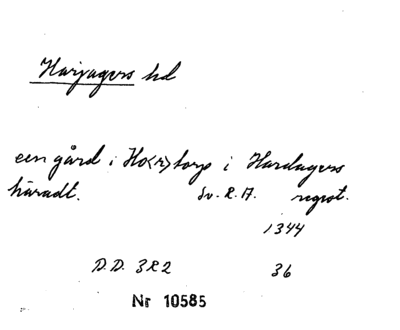 Harjagers hd
een gård i Ho<r>torp i Hardagers
häradt. Sv. R. A. regest.
1344
D.D. 3R2 36
Nr 10585